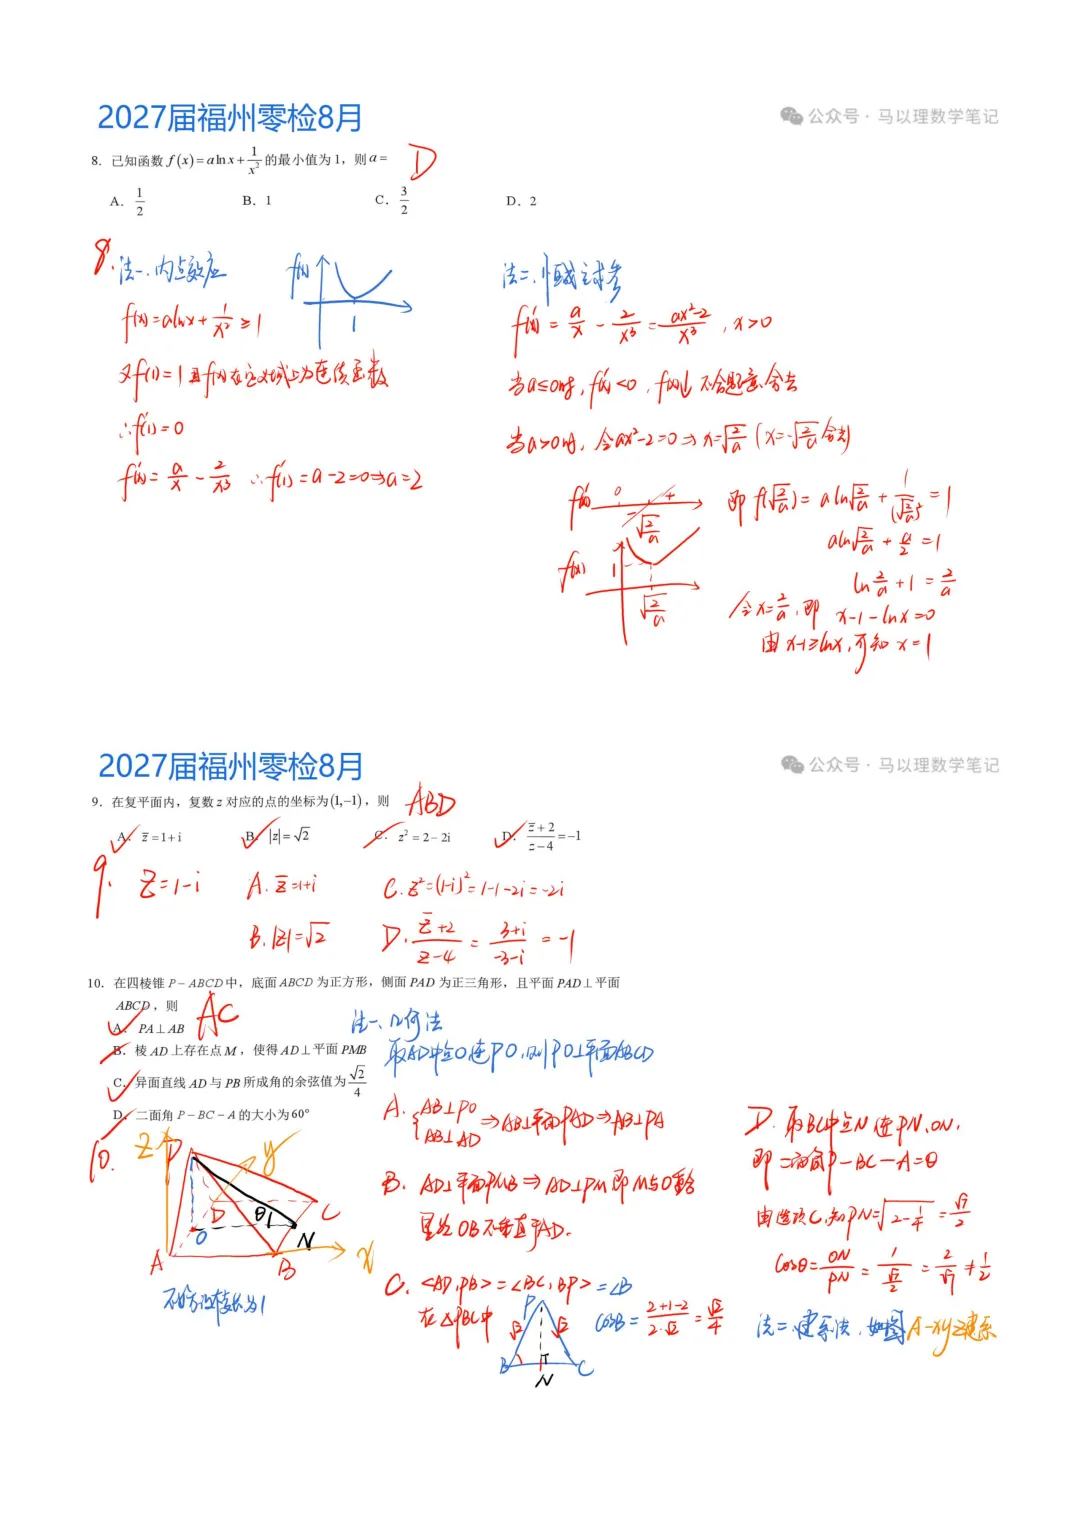 2027届福州零检8月
公众号 · 马以理数学笔记
8. 已知函数 f(x)=a ln x+1/x² 的最小值为 1，则 a= D
A. 1/2 B. 1 C. 3/2 D. 2
8. 法一. 内点效应 f(x) 1
f(x)=alnx+1/x²≥1
又f(1)=1且f(x)在定义域上为连续函数
∴f'(1)=0
f'(x)=a/x-2/x³ ∴f'(1)=a-2=0⇒a=2
法二.
f'(x)=a/x-2/x³=(ax²-2)/x³, x>0
当a≤0时, f'(x)<0, f(x)↓ 不合题意舍去
当a>0时, 令ax²-2=0⇒x=√(2/a) (x=-√(2/a)舍去)
f'(x) 0 - + √(2/a)
f(x) 1 √(2/a)
即f(√(2/a))=aln√(2/a)+1/(√(2/a))²=1
aln√(2/a)+a/2=1
ln2/a+1=2/a
令x=2/a, 即 x-1-lnx=0
由x-1≥lnx, 可知x=1
2027届福州零检8月
公众号 · 马以理数学笔记
9. 在复平面内，复数 z 对应的点的坐标为(1,-1)，则 ABD
A. z̄=1+i B. |z|=√2 C. z²=2-2i D. (z̄+2)/(z-4)=-1
9. z=1-i A. z̄=1+i C. z²=(1-i)²=1-1-2i=-2i
B. |z|=√2 D. (z̄+2)/(z-4)=(3+i)/(-3-i)=-1
10. 在四棱锥 P-ABCD 中，底面 ABCD 为正方形，侧面 PAD 为正三角形，且平面 PAD⊥平面
ABCD，则 AC
A. PA⊥AB
B. 棱 AD 上存在点 M，使得 AD⊥平面 PMB
C. 异面直线 AD 与 PB 所成角的余弦值为 √2/4
D. 二面角 P-BC-A 的大小为 60°
10. z P y D θ C O N A B x
不妨设棱长为1
法一、几何法
取AD中点O连PO, 则PO⊥平面ABCD
A. {AB⊥PO
AB⊥AD ⇒AB⊥平面PAD⇒AB⊥PA
B. AD⊥平面PMB⇒AD⊥PM即M与O重合
OB不垂直于AD.
C. <AD,PB>=<BC,BP>=∠B
在△PBC中 P √2 √2 B C N 1 cosB=(2+1-2)/(2·√2)=√2/4
D. 取BC中点N连PN, ON,
即二面角P-BC-A=θ
由选项C, 知PN=√(2-1/4)=√7/2
cosθ=ON/PN=1/(√7/2)=2/√7≠1/2
法二、建系法, 如图A-xyz建系